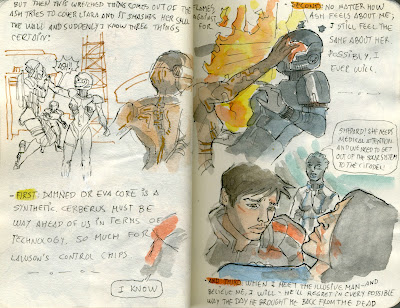 BUT THEN THIS WRETCHED THING COMES OUT OF THE FLAMES
ASH TRIES TO COVER LIARA AND IT SMASHES HER SKULL AGAINST
THE WALL AND SUDDENLY I KNOW THREE THINGS FOR
CERTAIN:
- FIRST: DAMNED OR EVA CORE IS A
SYNTHETIC. CERBERUS MUST BE
WAY AHEAD OF US IN TERMS OF
TECHNOLOGY. SO MUCH FOR
LAWSON'S CONTROL CHIPS
I KNOW
- SECOND: NO MATTER HOW
ASH FEELS ABOUT ME,
I STILL FEEL THE
SAME ABOUT HER.
POSSIBLY, I
EVER WILL.
SHEPARD! SHE NEEDS
MEDICAL ATTENTION
AND WE NEED TO GET
OUT OF THE SOLAR SYSTEM
TO THE CITADEL!
- AND THIRD: WHEN I MEET THE ILLUSIVE MAN - AND
BELIEVE ME, I WILL - HE'LL REGRET IN EVERY POSSIBLE
WAY THE DAY HE BROUGHT ME BACK FROM THE DEAD